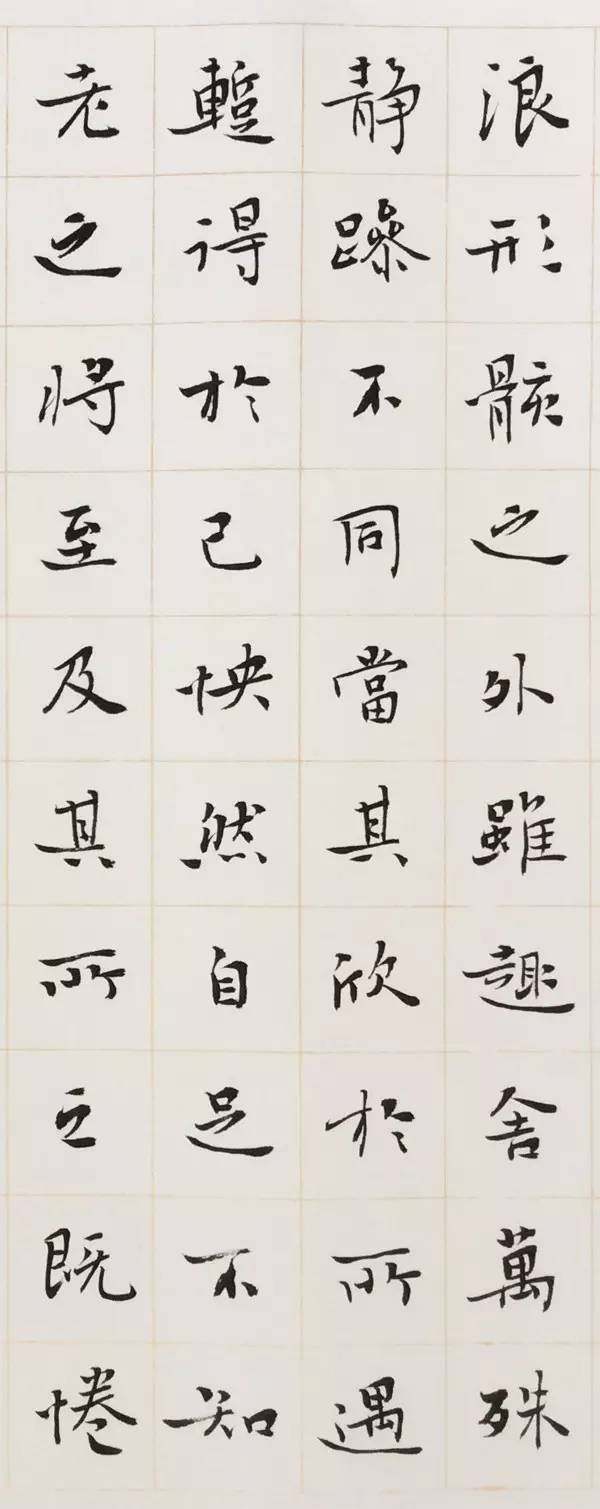 浪形骸之外雖趣舍萬殊
静躁不同當其欣於所遇
蹔得於己怏然自足不知
老之將至及其所之既惓